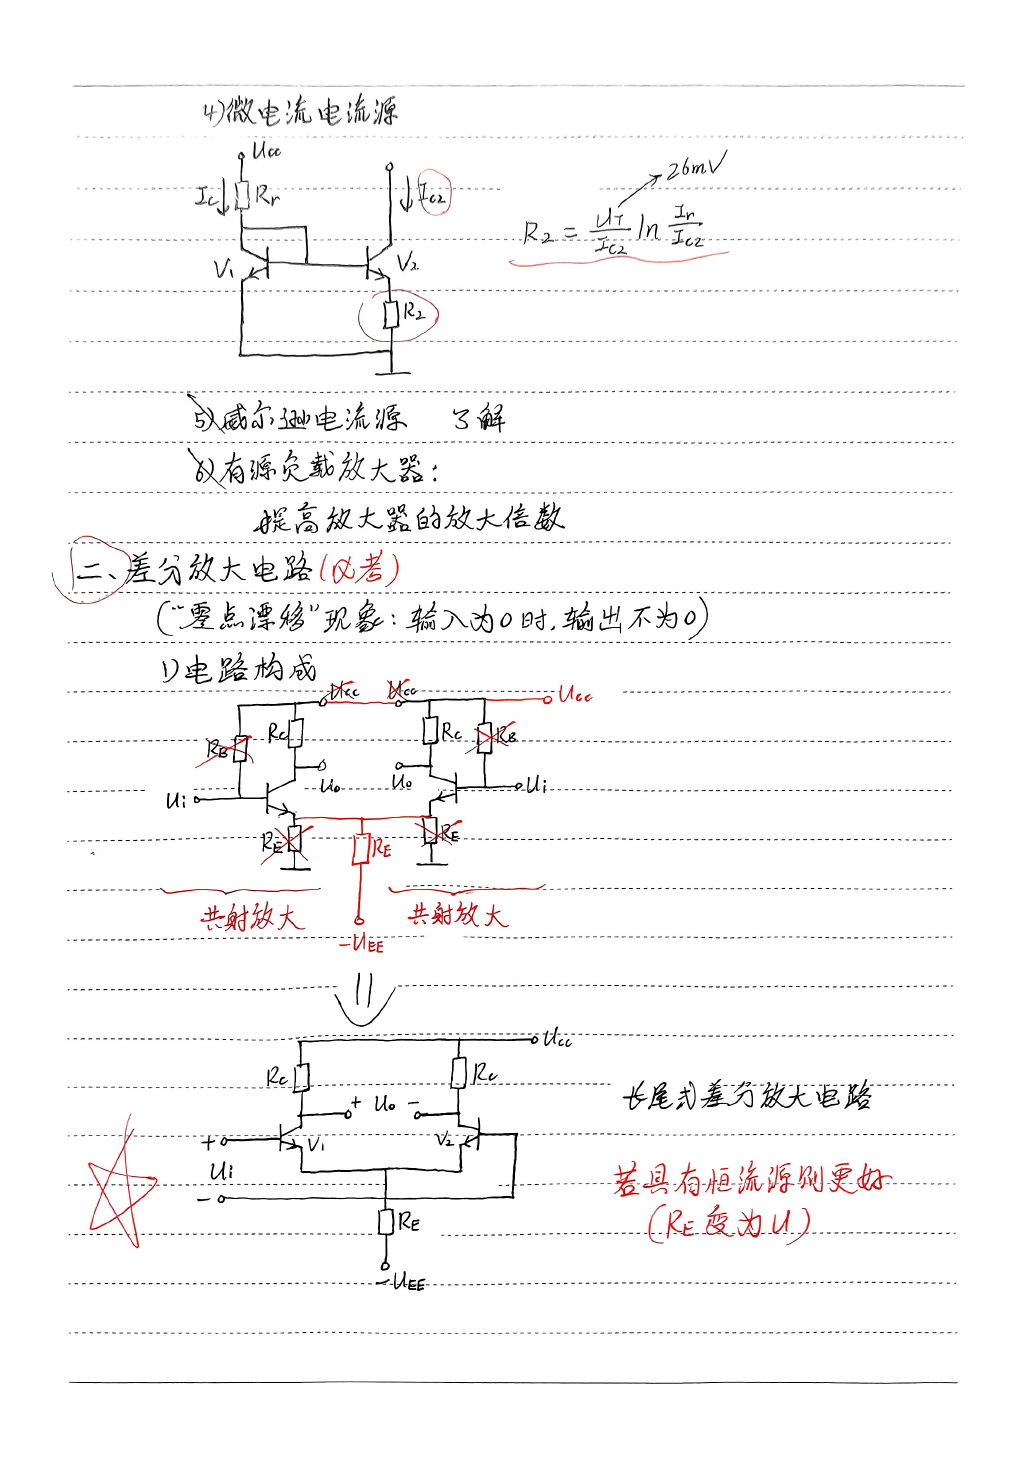 4)微电流电流源
Ucc
Ic Rr Ic2
V1 V2
R2
R2 = UT/Ic2 ln Ir/Ic2
26mV
5)威尔逊电流源 了解
6)有源负载放大器:
提高放大器的放大倍数
二、差分放大电路(必考)
("零点漂移"现象:输入为0时,输出不为0)
1)电路构成
Ucc Ucc Ucc
RB Rc Rc RB
Uo Uo
Ui Ui
RE RE RE
共射放大 共射放大
-UEE
Ucc
Rc Rc
+ Uo -
+ V1 V2
Ui
-
RE
-UEE
长尾式差分放大电路
若具有恒流源则更好
(RE变为U)